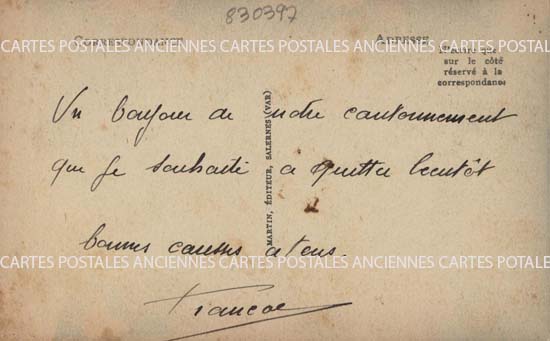 830397
CORRESPONDANCE
ADRESSE
CARTES POSTALES ANCIENNES CARTES POSTALES ANCIENNES CARTES POSTALES
sur le côté
réservé à la
correspondance
Un bonjour de notre cantonnement
que je souhaite a quitter bientôt
MARTIN, ÉDITEUR, SALERNES (VAR)
bonnes caresses a tous.
CARTES POSTALES ANCIENNES CARTES POSTALES ANCIENNES CARTES POSTALE